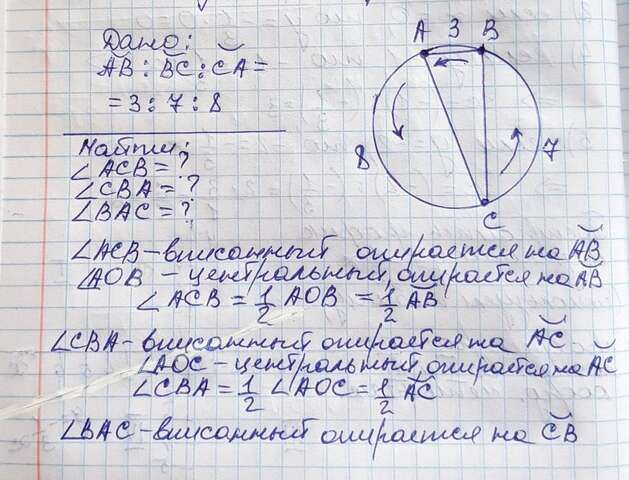 Дано:
A 3 B
AB : BC : CA =
= 3 : 7 : 8
Найти:
∠ACB = ?
8
7
∠CBA = ?
∠BAC = ?
C
∠ACB – вписанный опирается на AB
∠AOB – центральный, опирается на AB
∠ACB = 1/2 AOB = 1/2 AB
∠CBA – вписанный опирается на AC
∠AOC – центральный, опирается на AC
∠CBA = 1/2 ∠AOC = 1/2 AC
∠BAC – вписанный опирается на CB